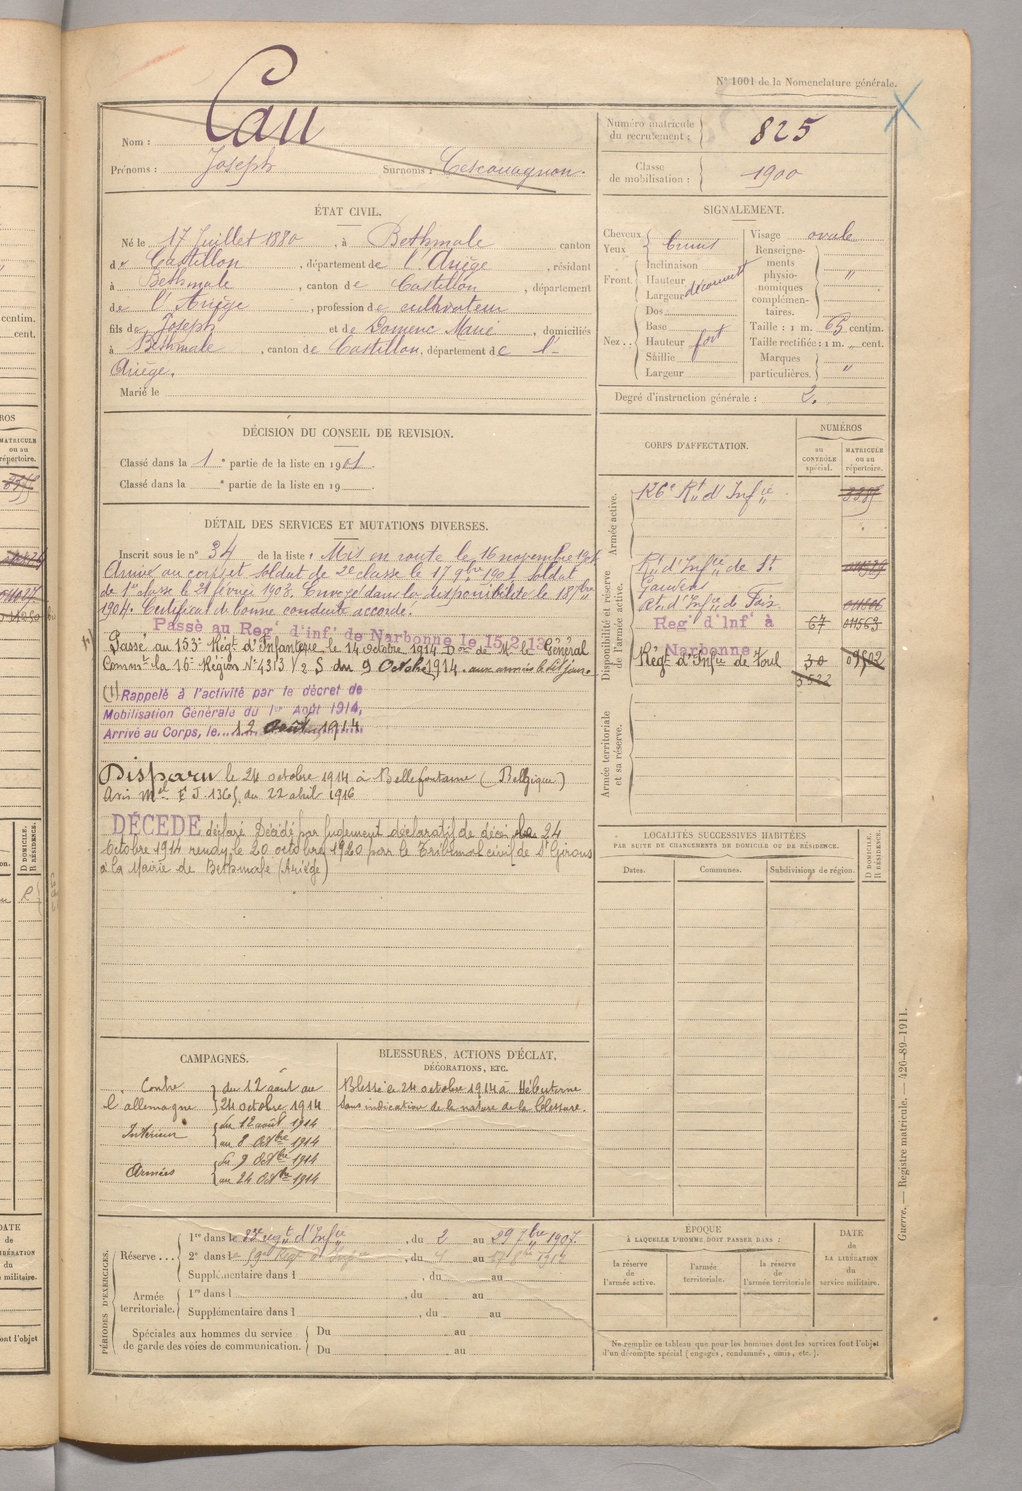 N° 1001 de la Nomenclature générale.
Nom : Cau
Prénoms : Joseph Surnoms :
Numéro matricule du recrutement : 825
Classe de mobilisation : 1900
ÉTAT CIVIL.
Né le 17 Juillet 1880, à Bethmale canton
de Castillon, département de l'Ariège, résidant
à Bethmale, canton de Castillon, département
de l'Ariège, profession de cultivateur
fils de Joseph et de Domenc Marie, domiciliés
à Bethmale, canton de Castillon, département de l'
Ariège.
Marié le
SIGNALEMENT.
Cheveux
Yeux
Front
Inclinaison
Hauteur
Largeur découvert
Nez
Dos
Base
Hauteur fort
Saillie
Largeur
Visage ovale
Renseignements physionomiques complémentaires. "
Taille : 1 m. 65 centim.
Taille rectifiée : 1 m. " cent.
Marques particulières. "
Degré d'instruction générale : 2.
DÉCISION DU CONSEIL DE REVISION.
Classé dans la 1e partie de la liste en 1901.
Classé dans la e partie de la liste en 19
DÉTAIL DES SERVICES ET MUTATIONS DIVERSES.
Inscrit sous le n° 34 de la liste. Mis en route le 16 novembre 1901
Arrivé au corps et soldat de 2e classe le 17 9bre 1901. Soldat
de 1re classe le 21 février 1903. Envoyé dans la disponibilité le 18 7bre
1904. Certificat de bonne conduite accordé.
Passé au Reg' d'inf' de Narbonne le 15.2.13
Passé au 153e Régt d'Infanterie le 14 octobre 1914 Don de M. le Général
Commt la 16e Région N° 4313 1/2 S du 9 Octobre 1914. aux armées le dit jour
(1) Rappelé à l'activité par le décret de
Mobilisation Générale du 1er Août 1914,
Arrivé au Corps, le 12 août 1914
Disparu le 24 octobre 1914 à Bellefontaine (Belgique)
Avis Mel F.J. 1365 du 22 avril 1916
DÉCÉDÉ déclaré Décédé par jugement déclaratif de décès le 24
Octobre 1914 rendu le 20 octobre 1920 par le Tribunal civil de St Girons
à la Mairie de Bethmale (Ariège)
CORPS D'AFFECTATION.
NUMÉROS
au CONTRÔLE spécial.
MATRICULE ou au répertoire.
Armée active.
126e Rt d'Infie
Disponibilité et réserve de l'armée active.
Rt d'Infie de St Gaudens
Rt d'Infie de Foix
Reg' d'Inf' à Narbonne 67 011563
Régt d'Infie de Toul 30 09502
3522
Armée territoriale et sa réserve.
LOCALITÉS SUCCESSIVES HABITÉES
PAR SUITE DE CHANGEMENTS DE DOMICILE OU DE RÉSIDENCE.
Dates.
Communes.
Subdivisions de région.
D DOMICILE.
R RÉSIDENCE.
CAMPAGNES.
Contre l'allemagne du 12 août au 24 octobre 1914
Intérieur du 12 août 1914
au 8 Octbre 1914
Armées du 9 Octbre 1914
au 24 Octbre 1914
BLESSURES, ACTIONS D'ÉCLAT,
DÉCORATIONS, ETC.
Blessé le 24 octobre 1914 à Hébuterne
Sans indication de la nature de la blessure.
PÉRIODES D'EXERCICES.
Réserve
1re dans le 22e régt d'Infie, du 2 au 29 7bre 1907.
2e dans le
Supplémentaire dans l , du au
Armée territoriale.
1re dans l , du au
Supplémentaire dans l , du au
Spéciales aux hommes du service de garde des voies de communication.
Du au
Du au
ÉPOQUE
À LAQUELLE L'HOMME DOIT PASSER DANS :
la réserve de l'armée active.
l'armée territoriale.
la réserve de l'armée territoriale
DATE de LA LIBÉRATION du service militaire.
Ne remplir ce tableau que pour les hommes dont les services font l'objet
d'un décompte spécial (engagés, condamnés, omis, etc.).
Guerre. — Registre matricule. — 426-89-1911.